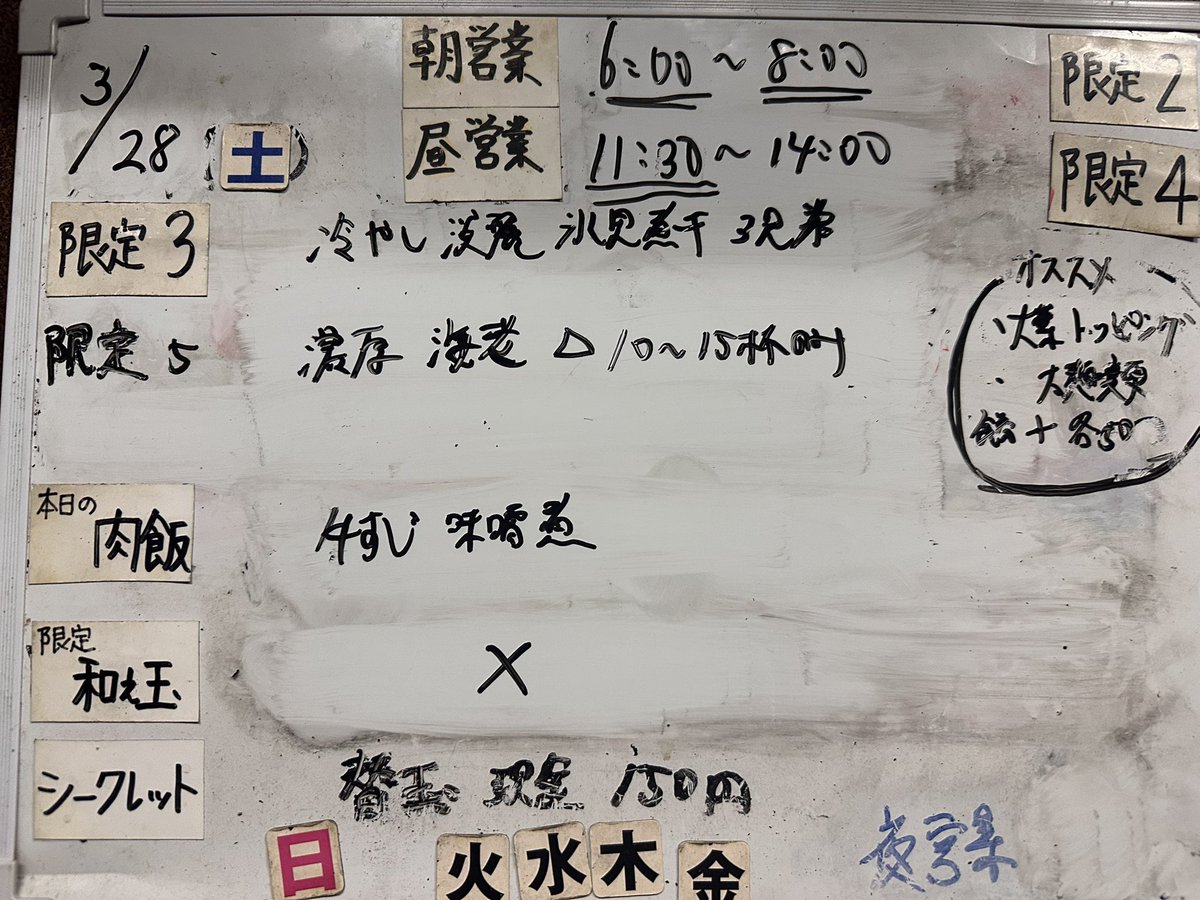 3/28 (土)
朝営業 6:00～8:00
昼営業 11:30～14:00
限定2
限定4
限定3 冷やし 淡麗 氷見煮干 3兄弟
限定5 濃厚 海老 △ 10～15杯
オススメ
・大葉トッピング
・大麺
各50
本日の
肉飯 牛すじ 味噌煮
限定
和え玉 ×
シークレット
替玉 現金 150円
日 火 水 木 金
夜営業